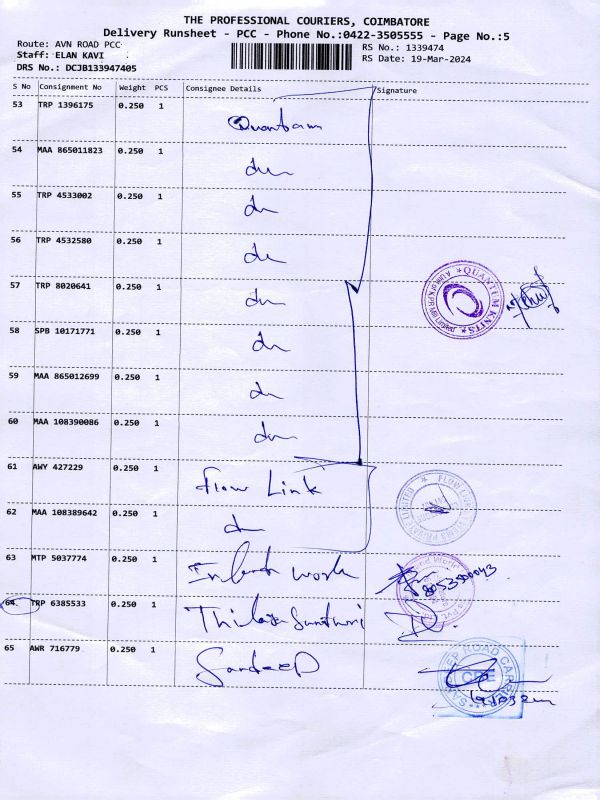 THE PROFESSIONAL COURIERS, COIMBATORE
Delivery Runsheet - PCC - Phone No.:0422-3505555 - Page No.:5
Route: AVN ROAD PCC
RS No.: 1339474
Staff: ELAN KAVI
RS Date: 19-Mar-2024
DRS No.: DCJB133947405
S No Consignment No Weight PCS Consignee Details Signature
53 TRP 1396175 0.250 1 Quantum
54 MAA 865011823 0.250 1 du
55 TRP 4533002 0.250 1 du
56 TRP 4532580 0.250 1 du
57 TRP 8020641 0.250 1 du
QUANTUM KNITS
58 SPB 10171771 0.250 1 du
59 MAA 865012699 0.250 1 du
60 MAA 108390086 0.250 1 du
61 AWY 427229 0.250 1 Flow Link
62 MAA 108389642 0.250 1 du
63 MTP 5037774 0.250 1 work
64. TRP 6385533 0.250 1
65 AWR 716779 0.250 1 Sandeep
SANDEEP ROAD CARRIER